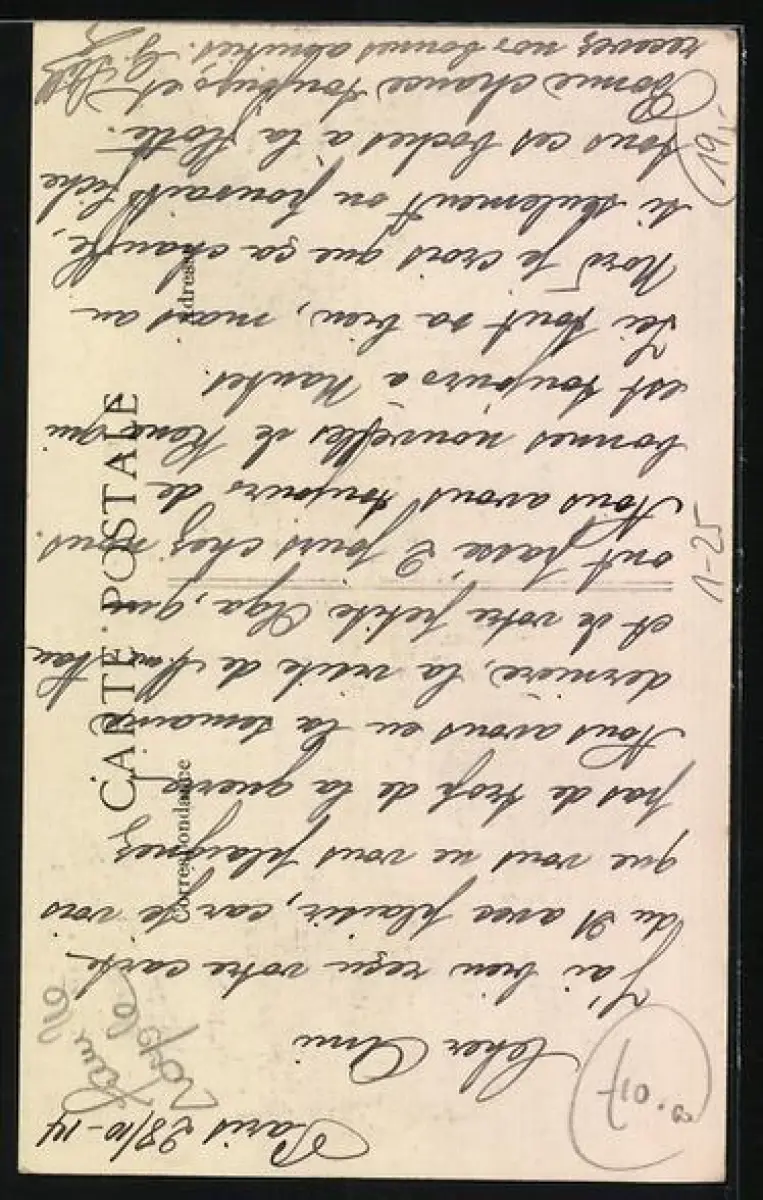 Paris 28/10-14
Cher Ami
J'ai bien reçu votre carte
du 21 avec plaisir, car je vois
que vous ne vous plaignez
pas de trop de la guerre
Nous avons eu la semaine
dernière, la visite de Mme
et de votre petite Olga, qui
ont passé 2 jours chez nous.
Nous avons toujours de
bonnes nouvelles de René qui
est toujours à Nantes.
Ici tout va bien, mais au
Nord je crois que ça chauffe,
si seulement on pouvait fiche
tous ces boches à la flotte.
Bonne chance toujours et
recevez nos bonnes amitiés.
CARTE POSTALE
Correspondance
Adresse
1-25
19,-